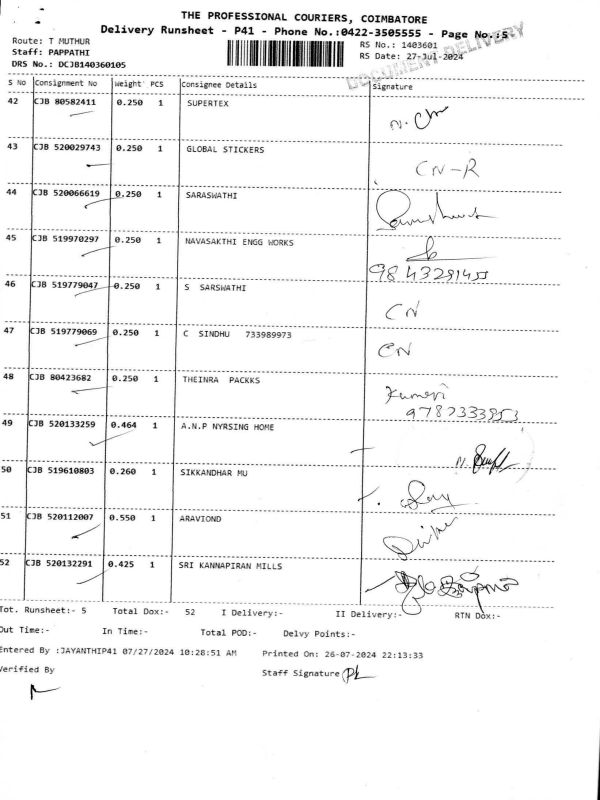 THE PROFESSIONAL COURIERS, COIMBATORE
Delivery Runsheet - P41 - Phone No.:0422-3505555 - Page No.:5
DOCUMENT DELIVERY
Route: T MUTHUR
RS No.: 1403601
Staff: PAPPATHI
RS Date: 27-Jul-2024
DRS No.: DCJB140360105
S No Consignment No Weight PCS Consignee Details Signature
42 CJB 80582411 0.250 1 SUPERTEX
43 CJB 520029743 0.250 1 GLOBAL STICKERS
CN-R
44 CJB 520066619 0.250 1 SARASWATHI
45 CJB 519970297 0.250 1 NAVASAKTHI ENGG WORKS
46 CJB 519779047 0.250 1 S SARSWATHI
CN
47 CJB 519779069 0.250 1 C SINDHU 733989973
CN
48 CJB 80423682 0.250 1 THEINRA PACKKS
49 CJB 520133259 0.464 1 A.N.P NYRSING HOME
50 CJB 519610803 0.260 1 SIKKANDHAR MU
51 CJB 520112007 0.550 1 ARAVIOND
52 CJB 520132291 0.425 1 SRI KANNAPIRAN MILLS
Tot. Runsheet:- 5 Total Dox:- 52 I Delivery:- II Delivery:- RTN Dox:-
Out Time:- In Time:- Total POD:- Delvy Points:-
Entered By :JAYANTHIP41 07/27/2024 10:28:51 AM Printed On: 26-07-2024 22:13:33
Verified By Staff Signature